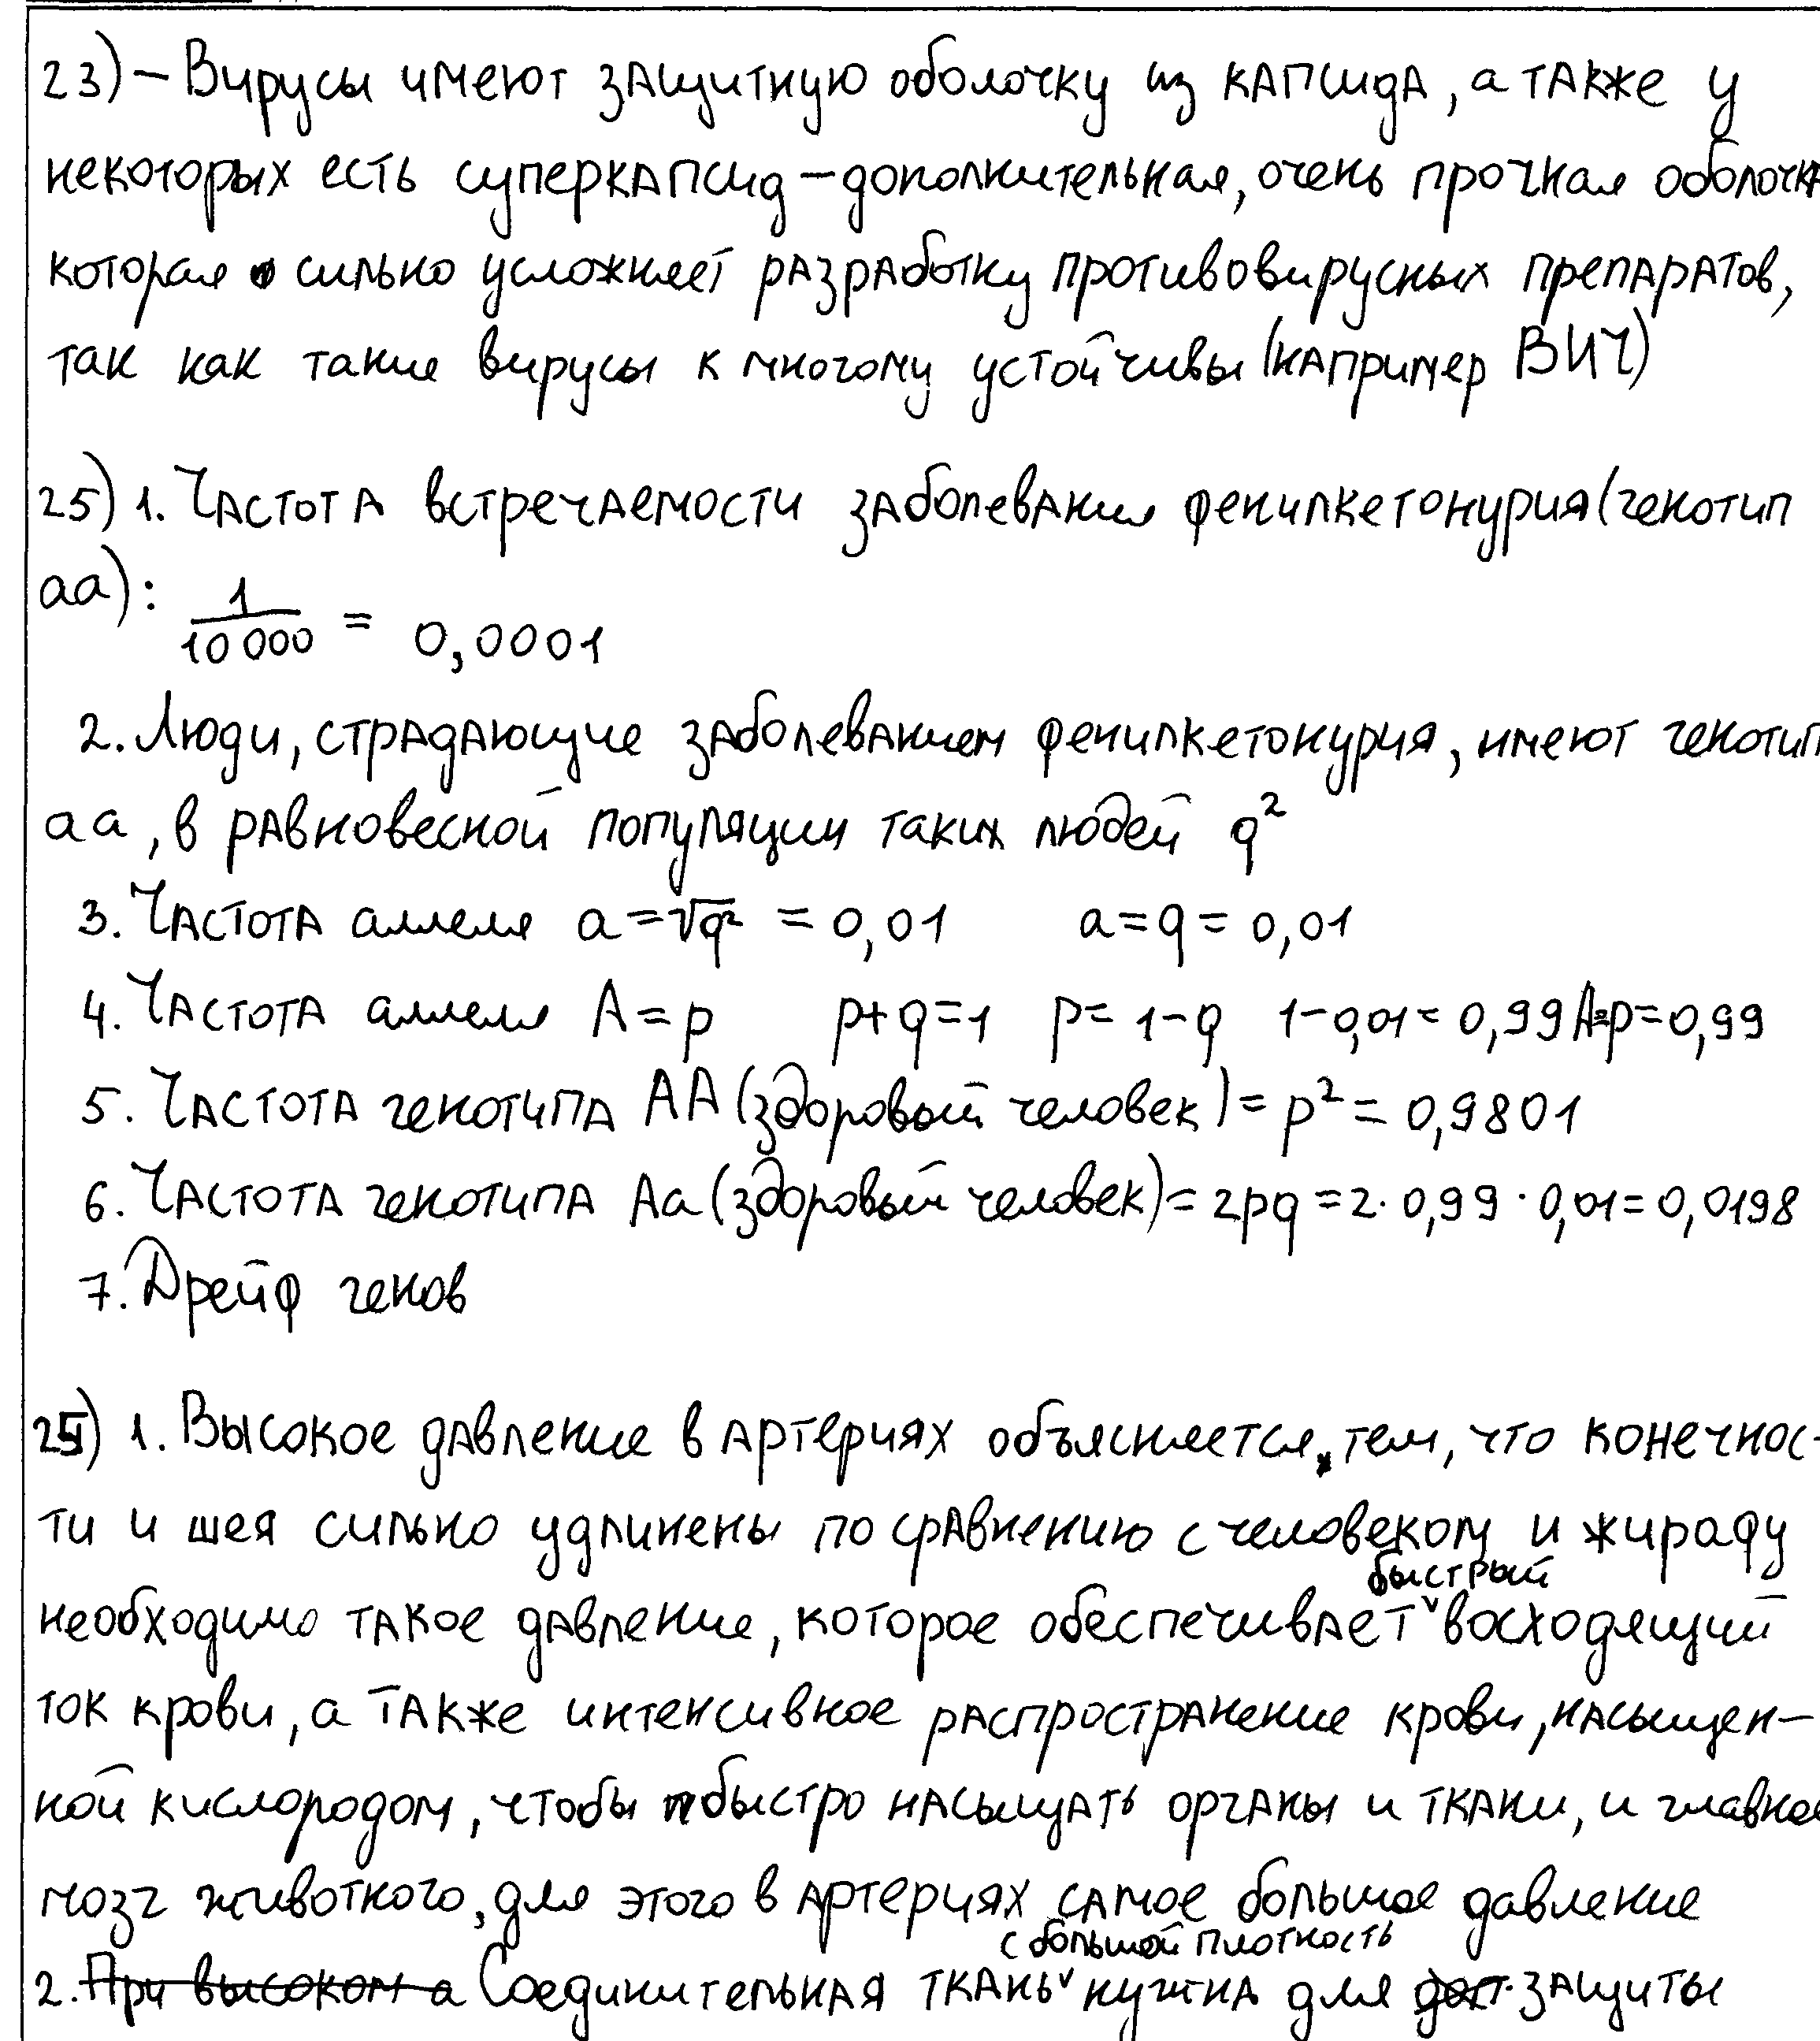 23) – Вирусы имеют защитную оболочку из капсида, а также у
некоторых есть суперкапсид – дополнительная, очень прочная оболочка
которая сильно усложняет разработку противовирусных препаратов,
так как такие вирусы к многому устойчивы (например ВИЧ)
25) 1. Частота встречаемости заболевания фенилкетонурия (генотип
аа): 1/10 000 = 0,0001
2. Люди, страдающие заболеванием фенилкетонурия, имеют генотип
аа, в равновесной популяции таких людей q²
3. Частота аллеля a = √q² = 0,01 a = q = 0,01
4. Частота аллеля A = p p + q = 1 p = 1 – q 1 – 0,01 = 0,99 A=p=0,99
5. Частота генотипа АА (здоровый человек) = p² = 0,9801
6. Частота генотипа Аа (здоровый человек) = 2pq = 2 · 0,99 · 0,01 = 0,0198
7. Дрейф генов
25) 1. Высокое давление в артериях объясняется тем, что конечнос-
ти и шея сильно удлинены по сравнению с человеком и жирафу
необходимо такое давление, которое обеспечивает быстрый восходящий
ток крови, а также интенсивное распространение крови, насыщен-
ной кислородом, чтобы быстро насыщать органы и ткани, и главное
мозг животного, для этого в артериях самое большое давление
2. При высоком а Соединительная ткань с большой плотность нужна для защиты